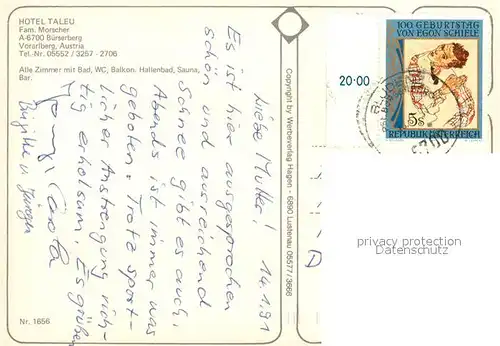 HOTEL TALEU
Fam. Morscher
A-6700 Bürserberg
Vorarlberg, Austria
Tel.-Nr. 05552 / 3257 - 2706
Alle Zimmer mit Bad, WC, Balkon. Hallenbad, Sauna,
Bar.
14.1.91
Liebe Mutter!
Es ist hier ausgesprochen
schön und ausreichend
Schnee gibt es auch.
Abends ist immer was
geboten. Trotz sport-
licher Anstrengung rich-
tig erholsam. Es grüßen
Carola
Birgitta u. Jürgen
Nr. 1656
Copyright by Werbeverlag Hagen - 6890 Lustenau 05577/3666
20·00
100. GEBURTSTAG
VON EGON SCHIELE
5s
REPUBLIK ÖSTERREICH
privacy protection
Datenschutz